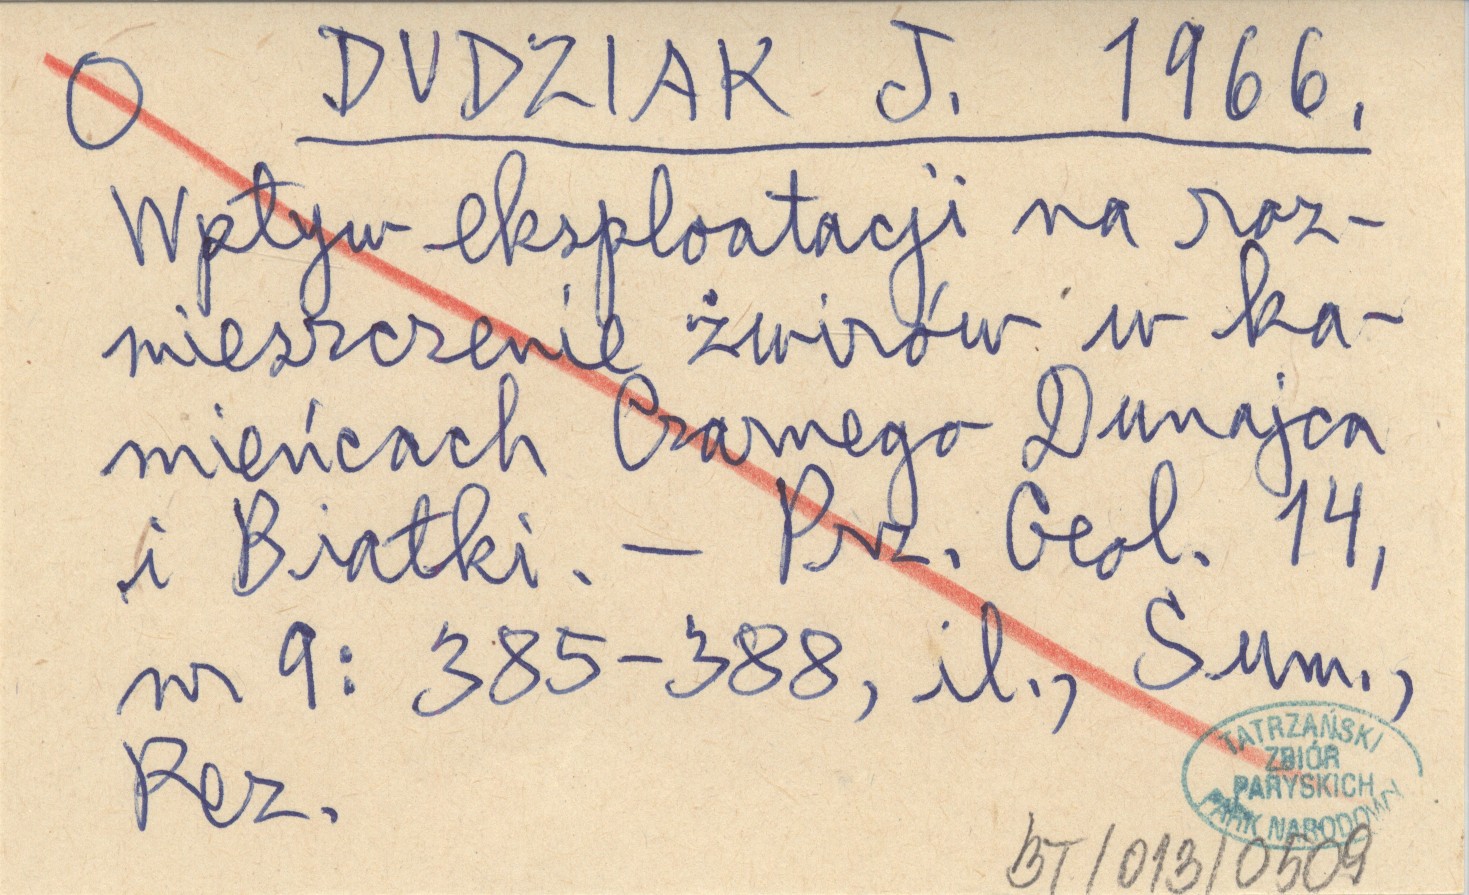 O DUDZIAK J. 1966.
Wpływ eksploatacji na roz-
mieszczenie żwirów w ka-
mieńcach Czarnego Dunajca
i Białki. — Prz. Geol. 14,
nr 9: 385-388, il., Sum.,
Rez.
TATRZAŃSKI
ZBIÓR
PARYSKICH
PARK NARODOWY
BT/013/0509